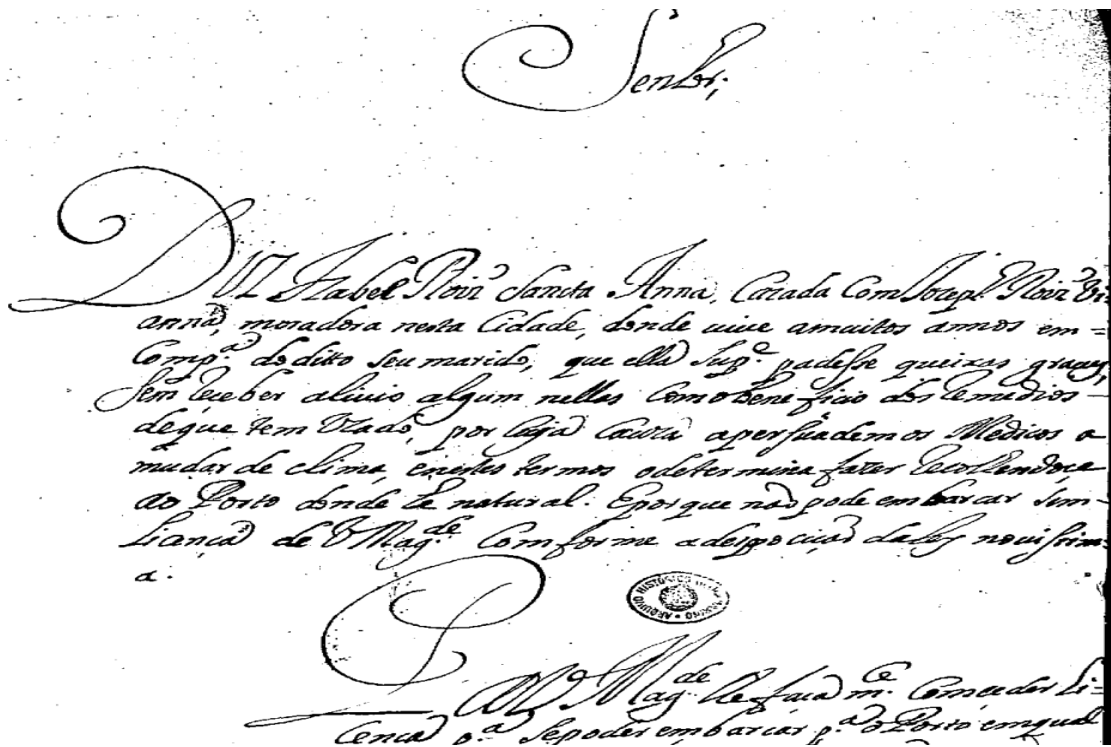 Senhor,
Diz Izabel Roiz Sancta Anna, Cazada Com Joseph Roiz Vi=
anna, moradora nesta Cidade, donde vive amuitos annos em=
Comp.ª do ditto seu marido, que ella Sup.e padesse queixas graves,
sem Receber alivio algum nellas Como bene ficio dos Remedios
de que tem Uzado, por Cuja Cauza apersuadem os Medicos a
mudar de clima, enestes termos o determina fazer Recolhendoçe
ao Porto donde he natural. Eporque naõ pode embarcar sem
Licança de V Mag.de Comforme adespociçaõ daley novissim=
a.
ARQUIVO HISTÓRICO
P
A V. Mag.de lhe faça m.ce Comceder Li=
cença p.ª se poder embarcar p.ª o Porto emqual